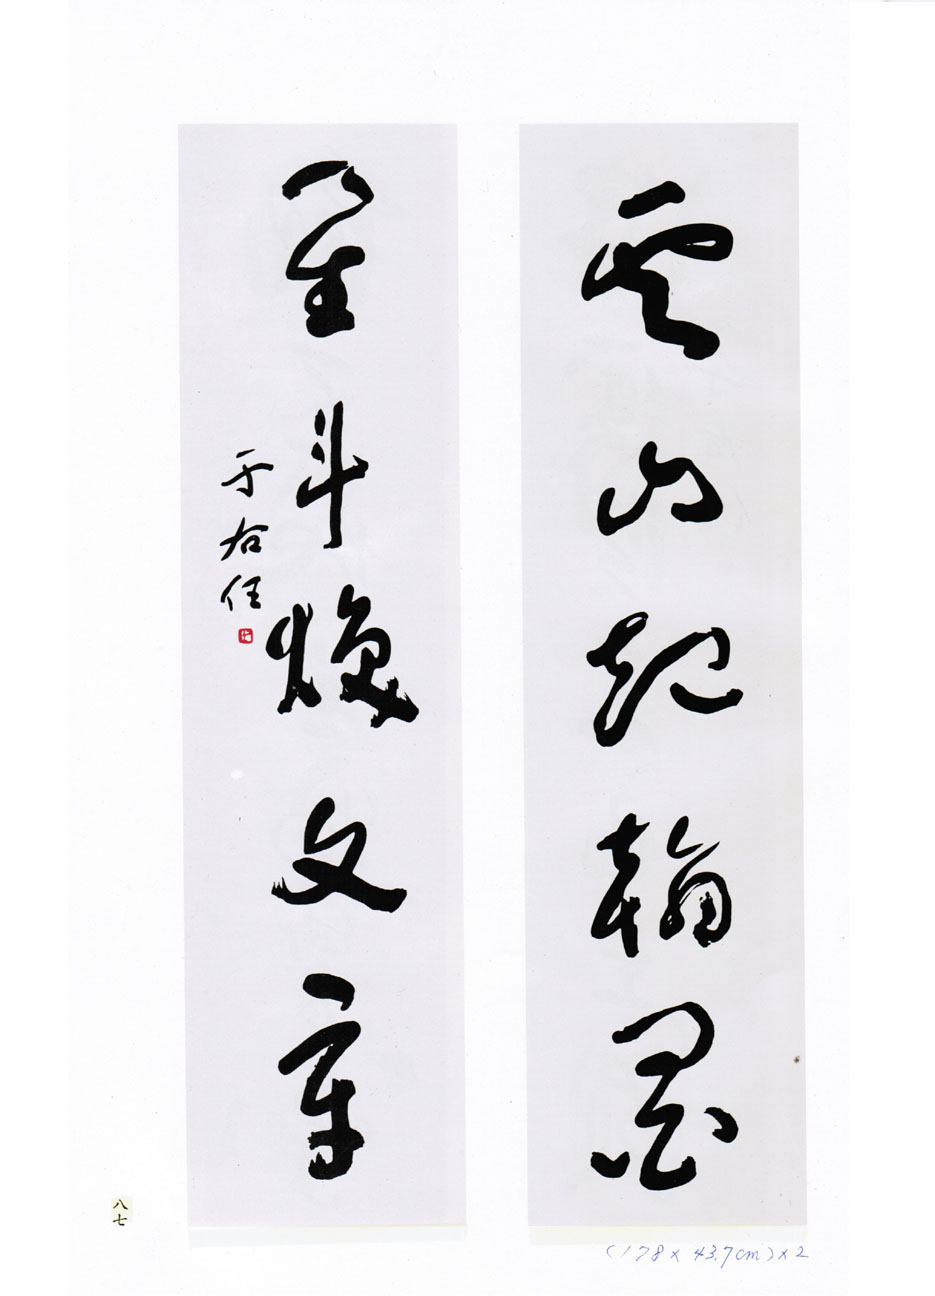 雲山起翰墨
星斗煥文章
于右任
八七
(178 x 43.7cm) x 2